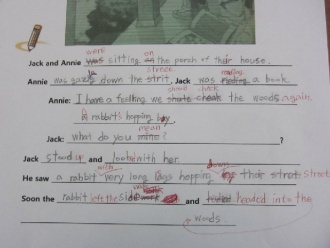 were on
Jack and Annie was sitting the porch of their house.
street
Annie was gazing down the strit. Jack was reading a book.
should check
Annie: I have a feeling we shute cheak the woods again.
A rabbit's hopping by.
mean
Jack: what do you mine? ?
Jack stood up and look with her.
with down
He saw a rabbit very long legs hopping thei stret street
walk
Soon the rabbit left the side and headed into the
woods.